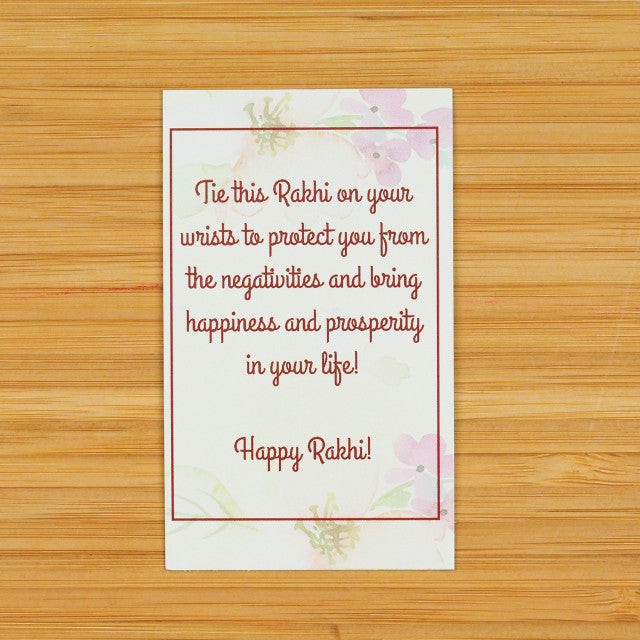 Tie this Rakhi on your
wrists to protect you from
the negativities and bring
happiness and prosperity
in your life!
Happy Rakhi!